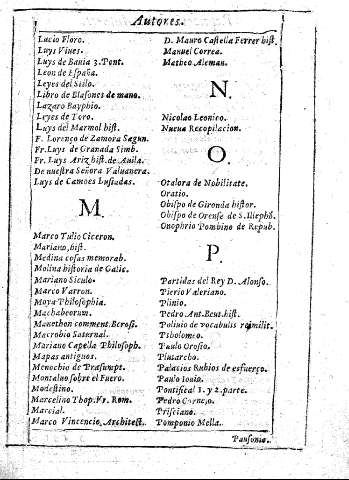 Autores.
Lucio Floro.
Luys Viues.
Luys de Bauia 3. Pont.
Leon de España.
Leyes del Stilo.
Libro de Blasones de mano.
Lazaro Bayphio.
Leyes de Toro.
Luys del Marmol hist.
F. Lorenço de Zamora Sagun.
Fr. Luys de Granada Simb.
Fr. Luys Ariz hist. de Auila.
De nuestra Señora Valuanera.
Luys de Camoes Lusiadas.
M.
Marco Tulio Ciceron.
Mariano, hist.
Medina cosas memorab.
Molina historia de Galic.
Mariano Siculo.
Marco Varron.
Moya Philosophia.
Machabeorum.
Manethon comment. Berosi.
Macrobio Saternal.
Mariano Capella Philosoph.
Mapas antiguos.
Menochio de Præsumpt.
Montaluo sobre el Fuero.
Modestino.
Marcelino Thop. Vr. Rom.
Marcial.
Marco Vincencio, Architect.
D. Mauro Castella Ferrer hist.
Manuel Correa.
Matheo Aleman.
N.
Nicolao Leonico.
Nueua Recopilacion.
O.
Otalora de Nobilitate.
Oratio.
Obispo de Gironda histor.
Obispo de Orense de S. Iliephõ.
Onophrio Pombino de Repub.
P.
Partidas del Rey D. Alonso.
Pierio Valeriano.
Plinio.
Pedro Ant. Beut. hist.
Polinio de vocabulis rei milit.
Ptholomeo.
Paulo Orosio.
Plutarcho.
Palacios Rubios de esfuerço.
Paulo Iouio.
Pontifical 1. y 2. parte.
Pedro Cornejo.
Prisciano.
Pomponio Mella.
Pausonia.